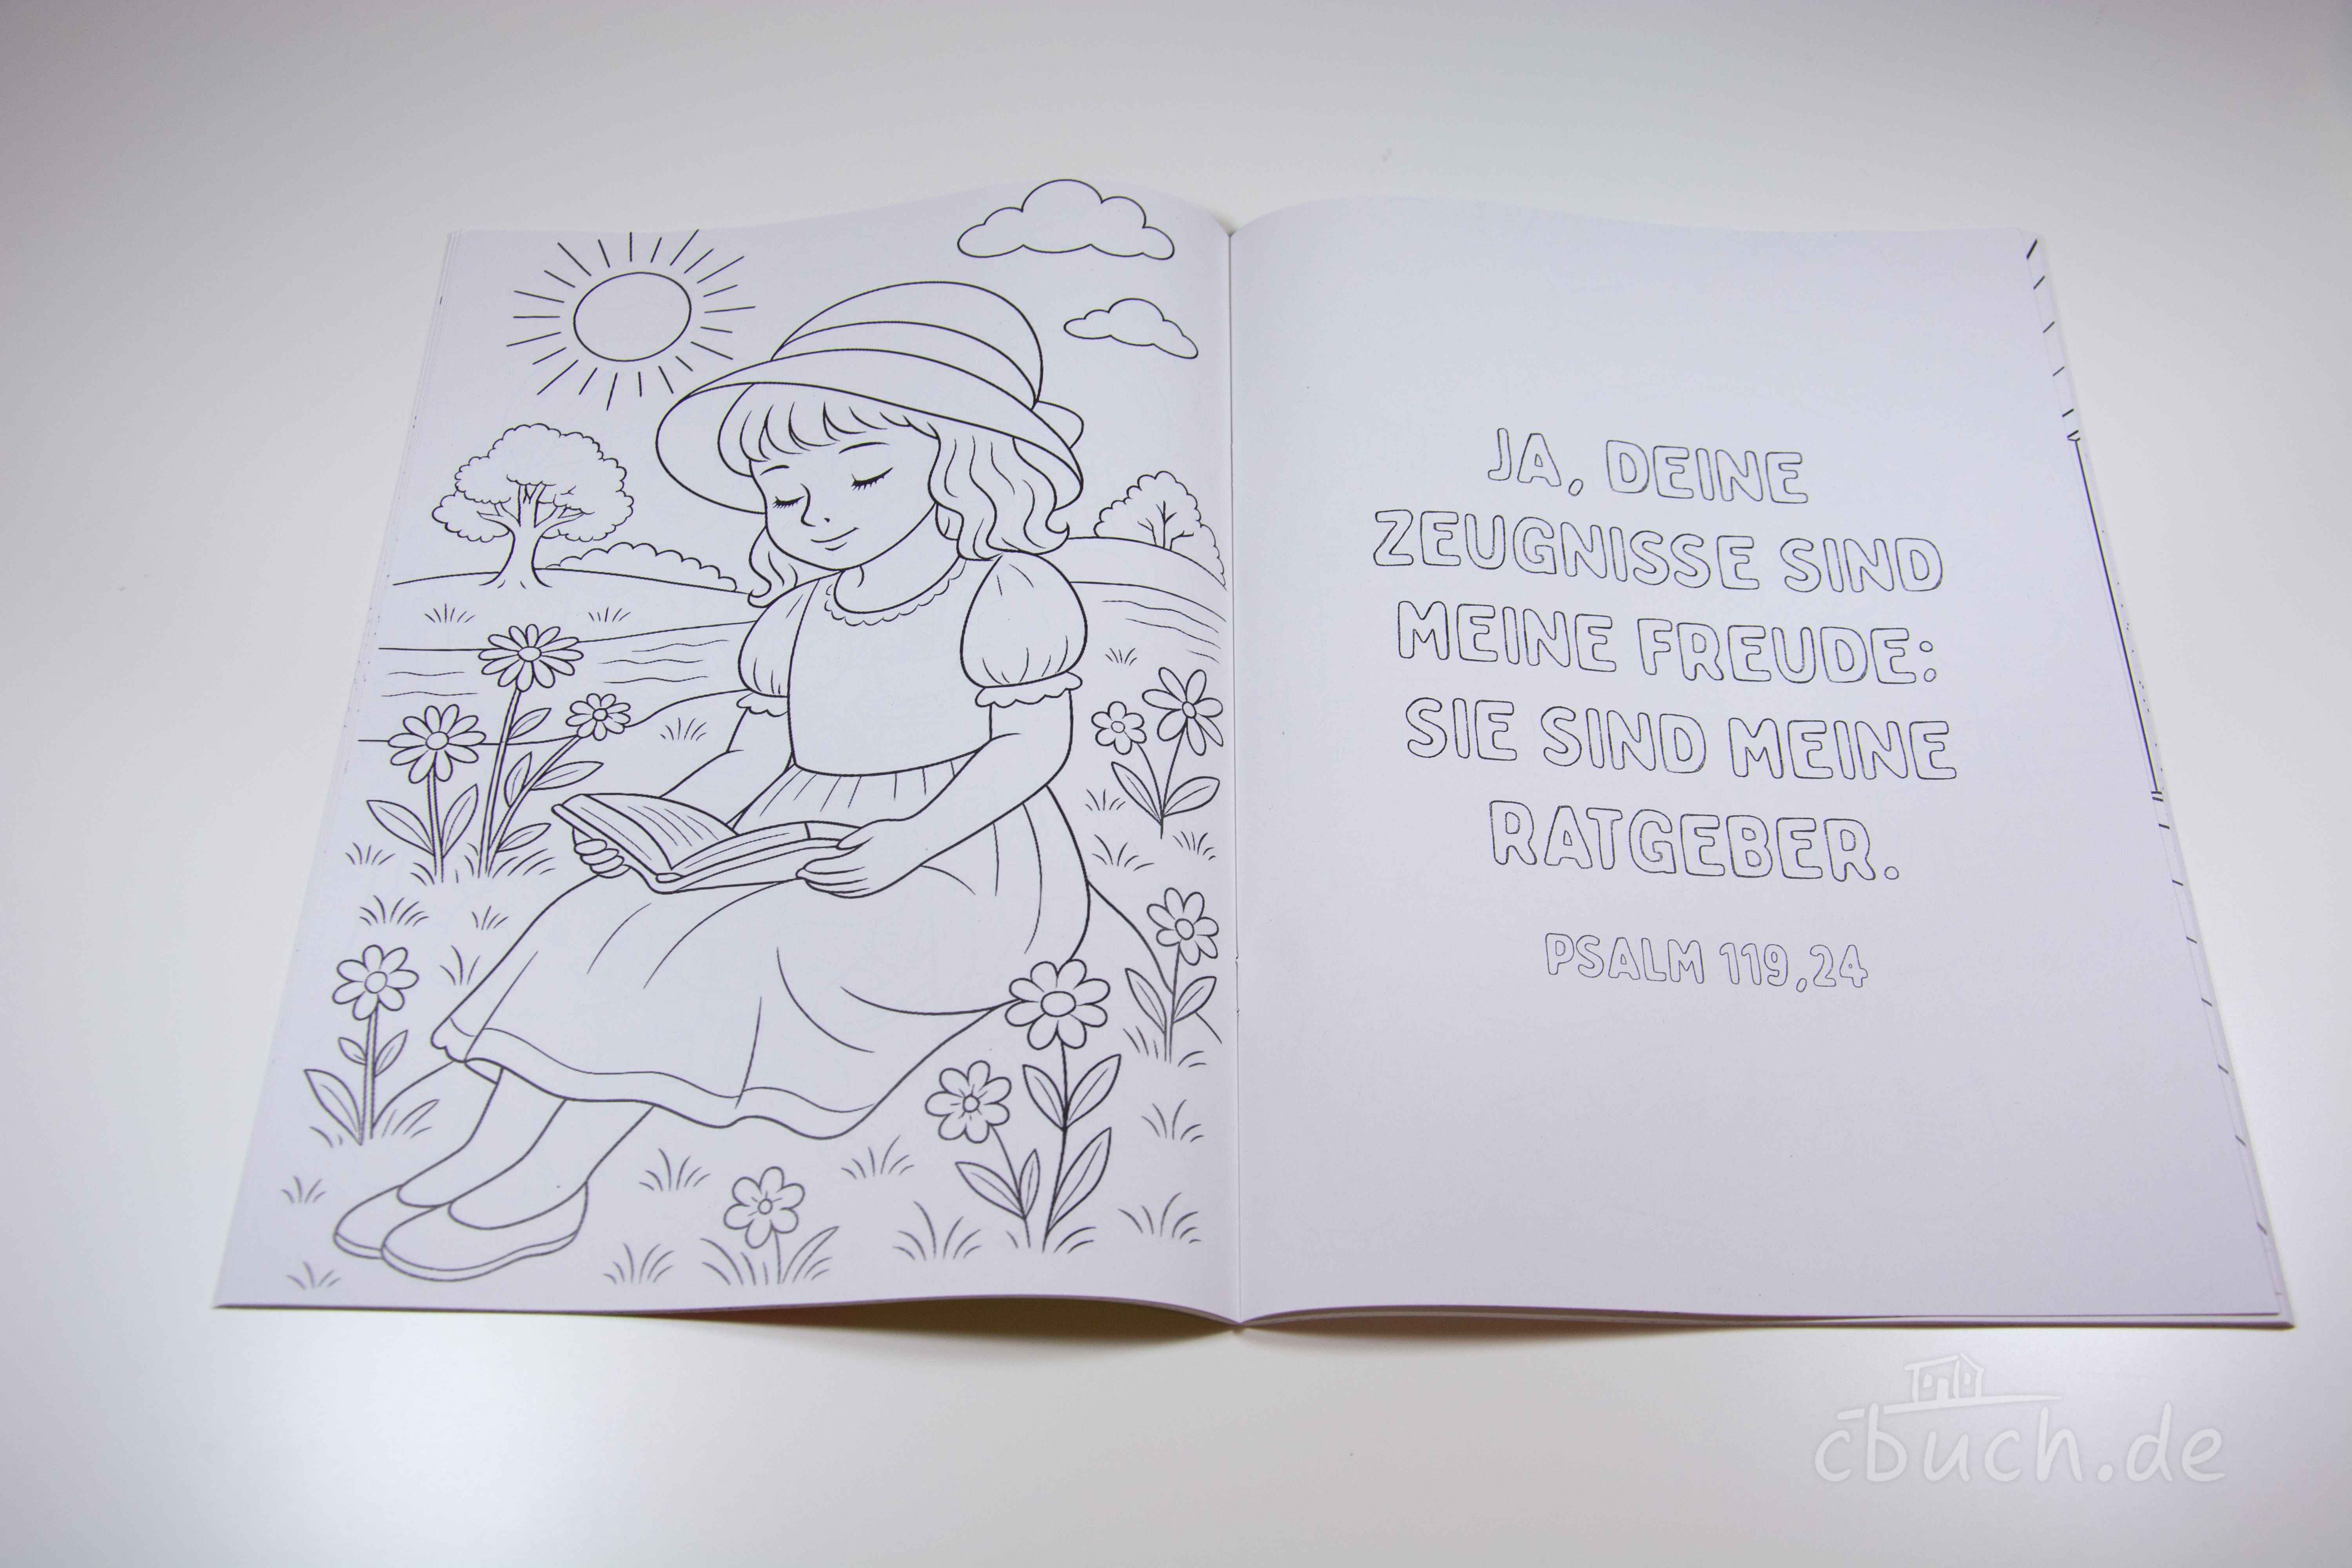 JA, DEINE
ZEUGNISSE SIND
MEINE FREUDE:
SIE SIND MEINE
RATGEBER.
PSALM 119,24
cbuch.de